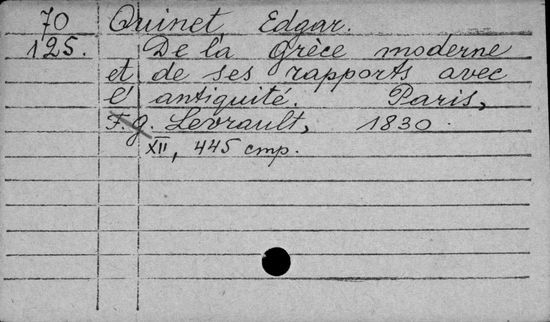 70 Quinet Edgar.
125. De la Grèce moderne
et de ses rapports avec
l'antiquité. Paris,
F. G. Levrault, 1830.
XII, 445 cmp.